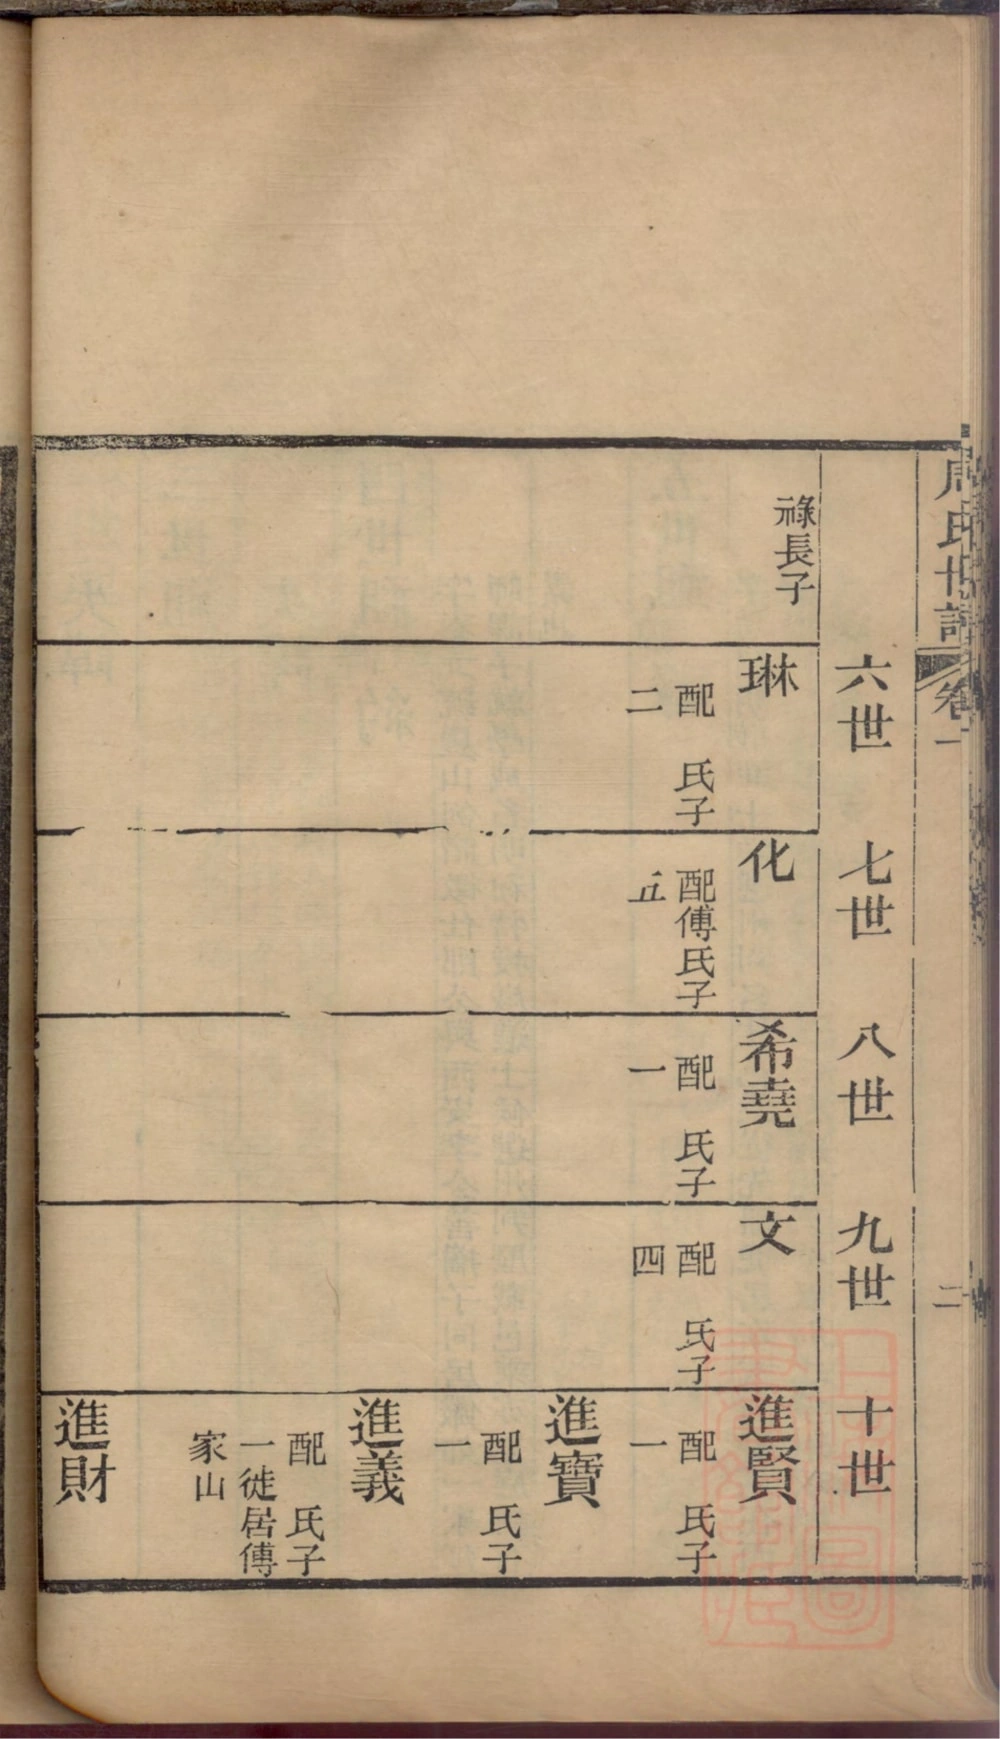 周氏世譜
卷一
二
六世
七世
八世
九世
十世
祿長子
琳
配　氏子
二
化
配傅氏子
五
希堯
配　氏子
一
文
配　氏子
四
進賢
配　氏子
一
進寶
配　氏子
一
進義
配　氏子
一徙居傅
家山
進財